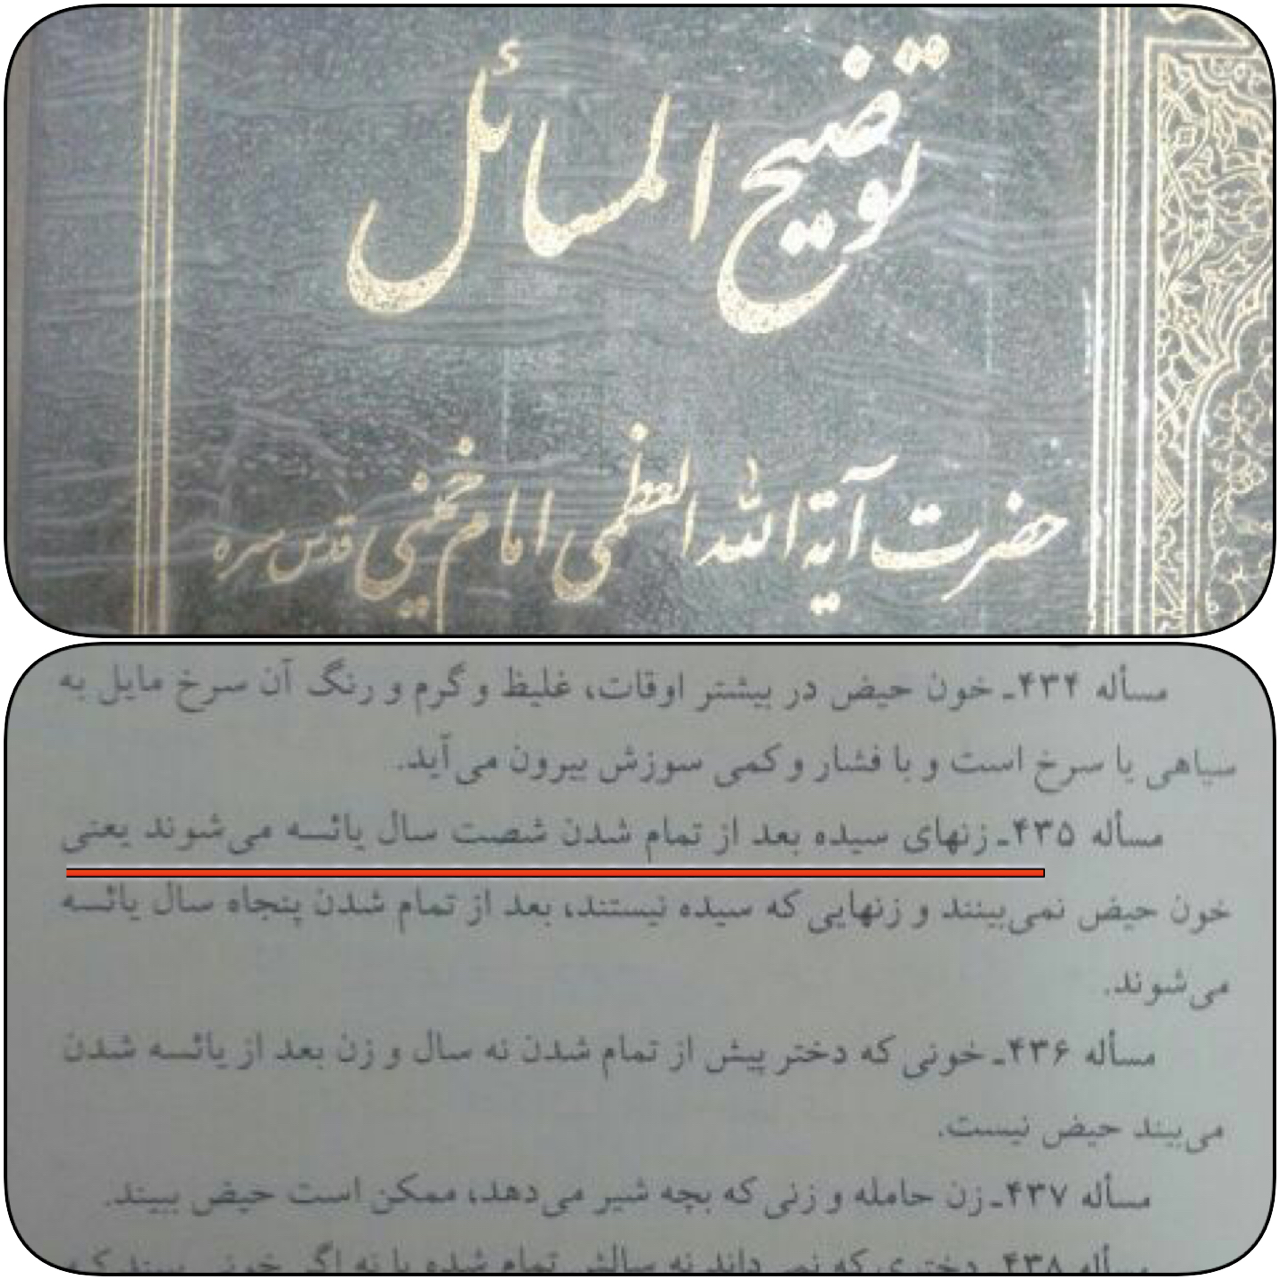 توضیح المسائل
حضرت آیة الله العظمی امام خمینی قدس سره
مسأله ۴۳۴ـ خون حیض در بیشتر اوقات، غلیظ و گرم و رنگ آن سرخ مایل به
سیاهی یا سرخ است و با فشار و کمی سوزش بیرون می‌آید.
مسأله ۴۳۵ـ زنهای سیده بعد از تمام شدن شصت سال یائسه می‌شوند یعنی
خون حیض نمی‌بینند و زنهایی که سیده نیستند، بعد از تمام شدن پنجاه سال یائسه
می‌شوند.
مسأله ۴۳۶ـ خونی که دختر پیش از تمام شدن نه سال و زن بعد از یائسه شدن
می‌بیند حیض نیست.
مسأله ۴۳۷ـ زن حامله و زنی که بچه شیر می‌دهد، ممکن است حیض ببیند.
مسأله ۴۳۸ـ دختری که نمی‌داند نه سالش تمام شده یا نه اگر خونی ببیند که